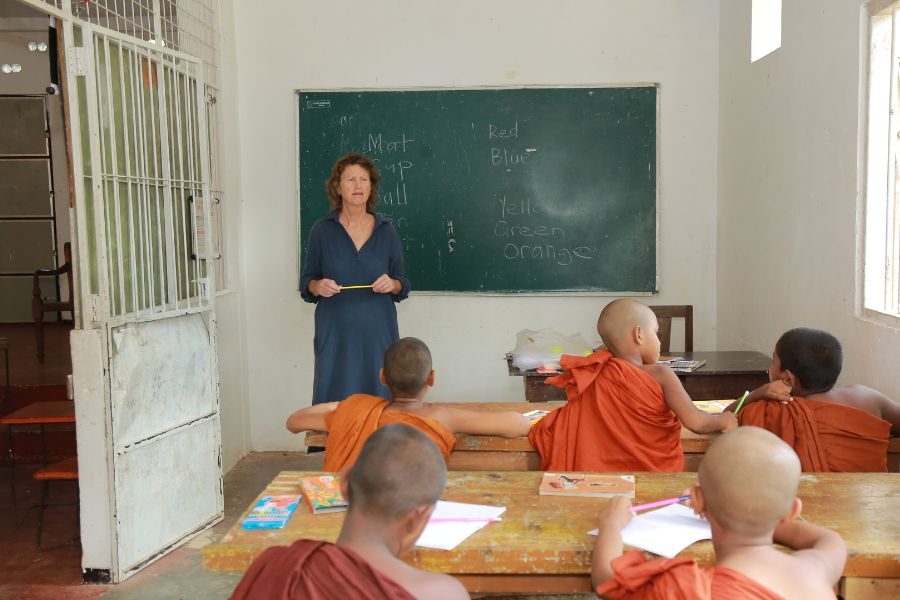 Mat
Cup
Ball
Red
Blue
Yellow
Green
orange